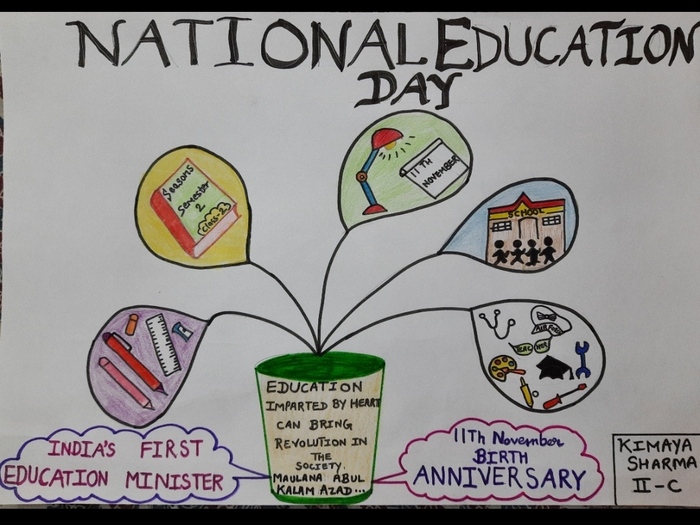 NATIONAL EDUCATION
DAY
Seasons
Semester
2
Class-2
11TH
NOVEMBER
SCHOOL
TEACHER
EDUCATION
IMPARTED BY HEART
CAN BRING
REVOLUTION IN
THE
SOCIETY.
MAULANA ABUL
KALAM AZAD...
INDIA'S FIRST
EDUCATION MINISTER
11Th November
BIRTH
ANNIVERSARY
KIMAYA
SHARMA
II-C